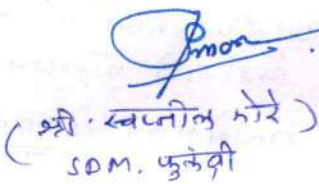 (श्री. स्वप्नील मोरे)
SDM. फुलंब्री